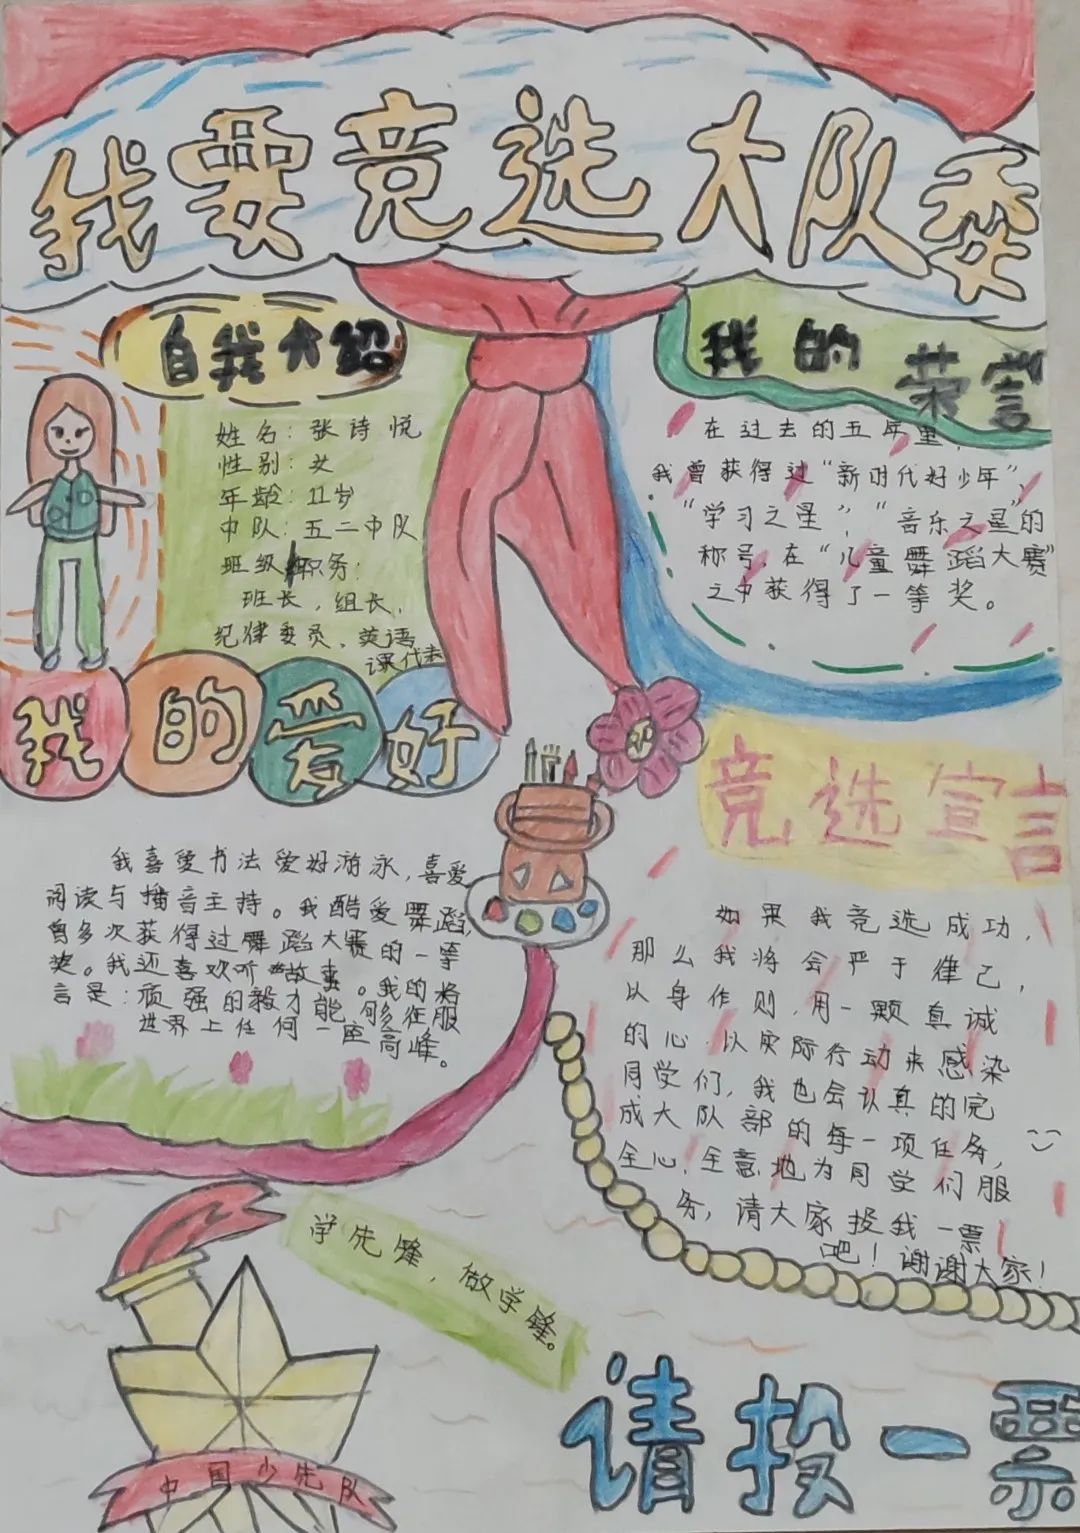 我要竞选大队委
自我介绍
姓名：张诗悦
性别：女
年龄：11岁
中队：五二中队
班级职务：
班长，组长，
纪律委员，英语
课代表
我的荣誉
在过去的五年里，
我曾获得过“新时代好少年”、
“学习之星”，“音乐之星”的
称号，在“儿童舞蹈大赛”
之中获得了一等奖。
我的爱好
我喜爱书法爱好游泳，喜爱
阅读与播音主持。我酷爱舞蹈，
曾多次获得过舞蹈大赛的一等
奖。我还喜欢听故事。我的格
言是：顽强的毅力能够征服
世界上任何一座高峰。
竞选宣言
如果我竞选成功，
那么我将会严于律己，
以身作则，用一颗真诚
的心，以实际行动来感染
同学们，我也会认真的完
成大队部的每一项任务，
全心，全意地为同学们服
务，请大家投我一票
吧！谢谢大家！
学先锋，做学锋。
中国少先队
请投一票